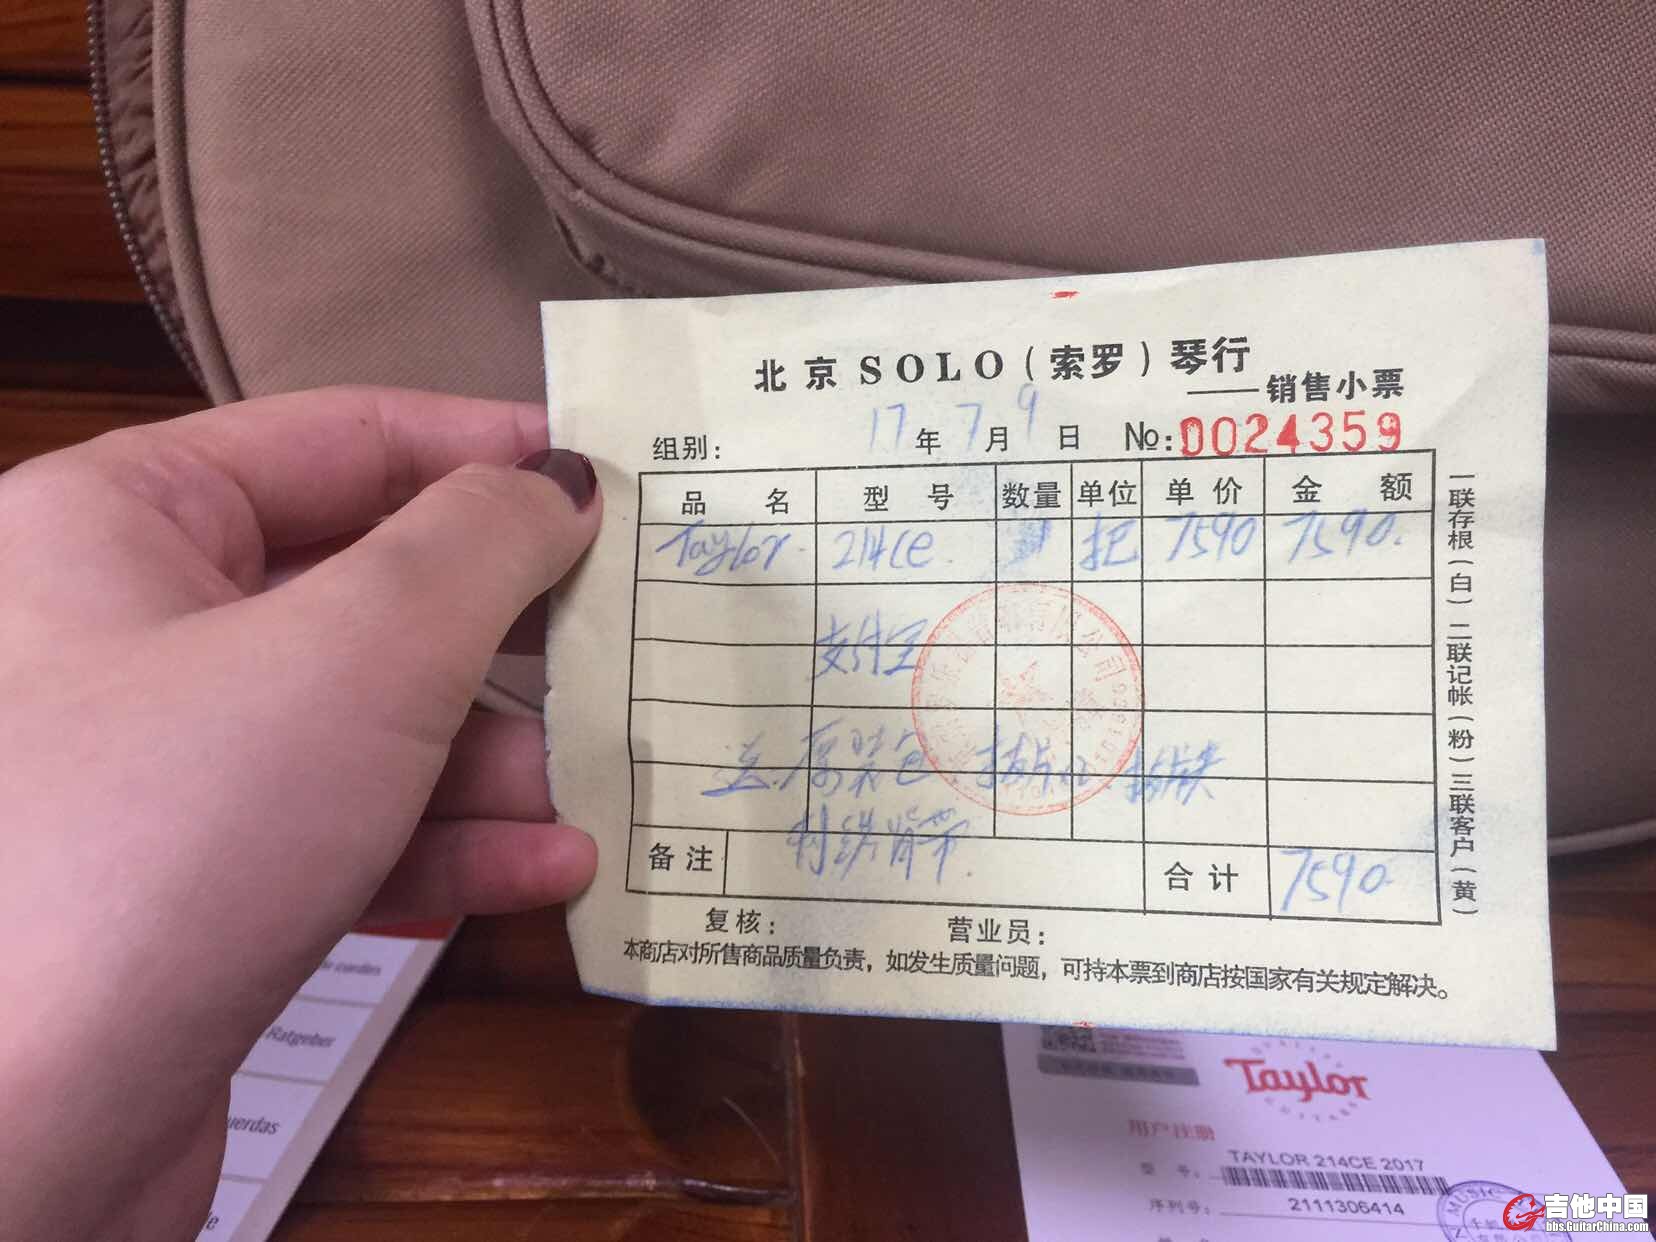 北京SOLO(索罗)琴行
——销售小票
组别: 17年7月9日 №:0024359
品名 型号 数量 单位 单价 金额
Taylor 214ce 把 7590 7590.
支付宝
送.原装包
背带.
备注 合计 7590.
复核: 营业员:
本商店对所售商品质量负责,如发生质量问题,可持本票到商店按国家有关规定解决。
一联存根(白)二联记帐(粉)三联客户(黄)
有限公司
Ratgeber
uerdas
Taylor
GUITARS
用户注册
型号: TAYLOR 214CE 2017
序列号: 2111306414
MUSIC
吉他中国
bbs.GuitarChina.com